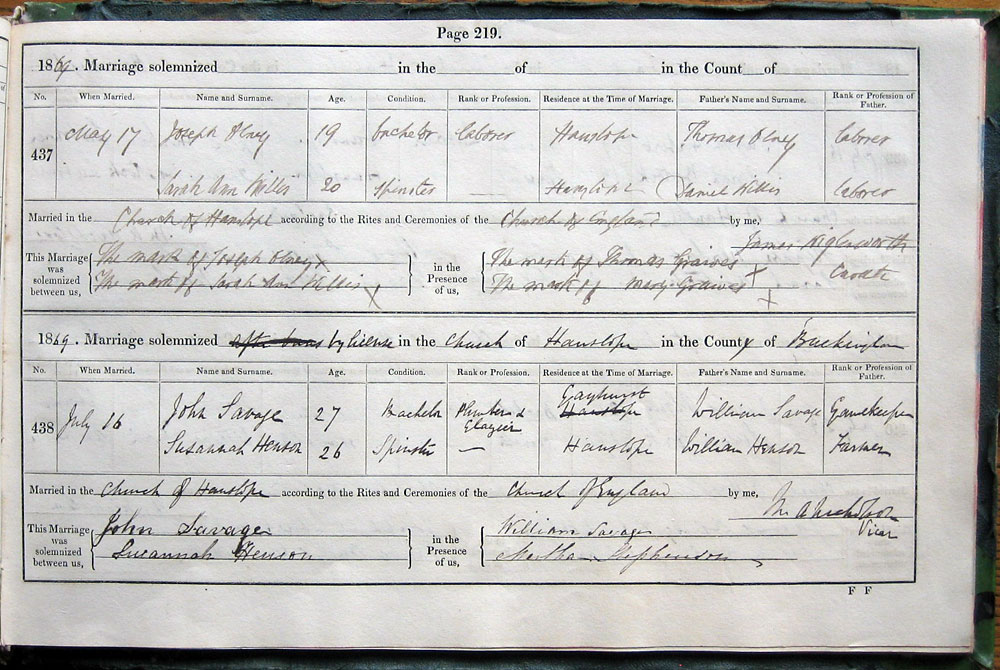 Page 219.
1869. Marriage solemnized in the of in the Count of
No. When Married. Name and Surname. Age. Condition. Rank or Profession. Residence at the Time of Marriage. Father's Name and Surname. Rank or Profession of Father.
437 May 17 Joseph Olney 19 bachelor laborer Hanslope Thomas Olney laborer
Sarah Ann Willis 20 Spinster — Hanslope Daniel Willis laborer
Married in the Church of Hanslope according to the Rites and Ceremonies of the Church of England by me,
James
This Marriage was solemnized between us, The mark of Joseph Olney x in the Presence of us, The mark of Thomas Graives x Curate
The mark of Sarah Ann Willis x The mark of Mary Graives x
1869. Marriage solemnized after banns by license in the Church of Hanslope in the County of Buckingham
No. When Married. Name and Surname. Age. Condition. Rank or Profession. Residence at the Time of Marriage. Father's Name and Surname. Rank or Profession of Father.
438 July 16 John Savage 27 Bachelor Plumber & Glazier Hanslope Gayhurst William Savage Gamekeeper
Susannah Henson 26 Spinster — Hanslope William Henson Farmer
Married in the Church of Hanslope according to the Rites and Ceremonies of the Church of England by me,
Vicar
This Marriage was solemnized between us, John Savage in the Presence of us, William Savage
Susannah Henson Martha Stephenson
F F